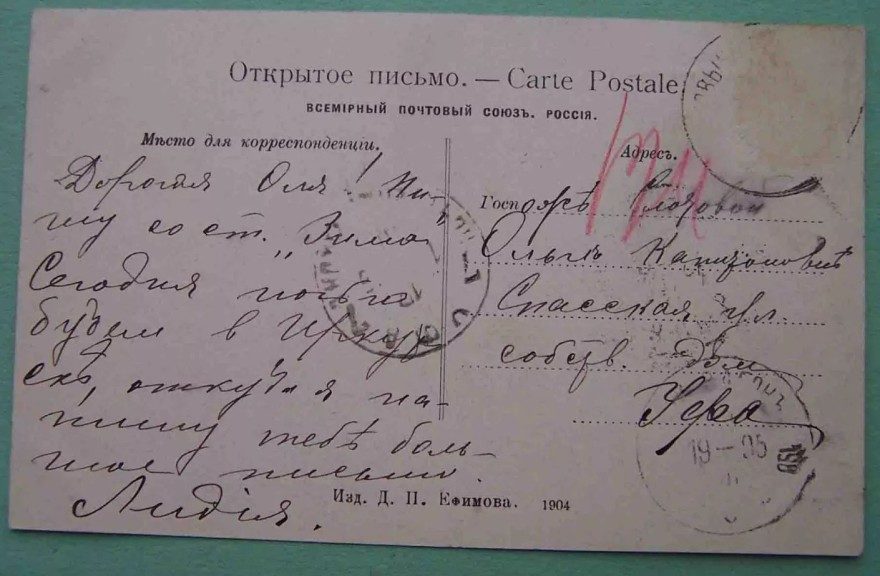 Открытое письмо. — Carte Postale.
ВСЕМІРНЫЙ ПОЧТОВЫЙ СОЮЗЪ. РОССІЯ.
Мѣсто для корреспонденціи.
Дорогая Оля! Пи-
шу со ст. "Зима"
Сегодня
будем в Иркут
скѣ, откуда я на-
пишу тебѣ боль-
шое письмо.
Лидія.
Адресъ.
Госпожѣ
Ольгѣ Капитоновнѣ
Спасская ул.
собств. дом
Уфа
19-05
Изд. Д. П. Ефимова. 1904